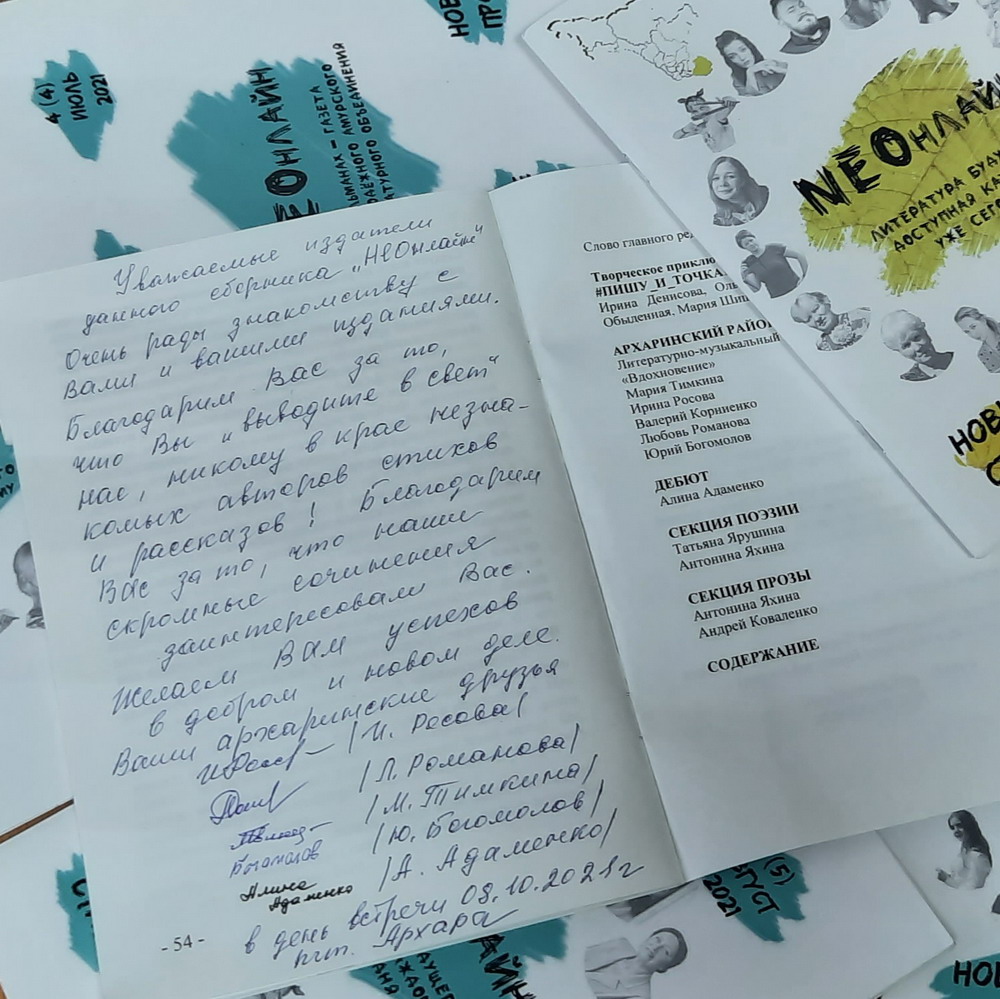 4 (4)
ИЮЛЬ
2021
НЕОНЛАЙН
АЛЬМАНАХ - ГАЗЕТА
МОЛОДЁЖНОГО АМУРСКОГО
ЛИТЕРАТУРНОГО ОБЪЕДИНЕНИЯ
NЕОНЛАЙН
ЛИТЕРАТУРА БУДУ
ДОСТУПНАЯ КА
УЖЕ СЕГО
Уважаемые издатели
данного сборника „НеОнлайн"
Очень рады знакомству с
Вами и вашими изданиями.
Благодарим Вас за то,
что Вы „выводите в свет"
нас, никому в крае незна-
комых авторов стихов
и рассказов! Благодарим
Вас за то, что наши
скромные сочинения
заинтересовали Вас.
Желаем Вам успехов
в добром и новом деле.
Ваши архаринские друзья
/И. Росова/
/Л. Романова/
/М. Тимкина/
Богомолов /Ю. Богомолов/
Алина Адаменко /А. Адаменко/
в день встречи 08.10.2021г
пгт. Архара
- 54 -
Слово главного ре
Творческое приклю
#ПИШУ_И_ТОЧКА
Ирина Денисова, Оль
Обыденная, Мария Шип
АРХАРИНСКИЙ РАЙОН
Литературно-музыкальный
«Вдохновение»
Мария Тимкина
Ирина Росова
Валерий Корниенко
Любовь Романова
Юрий Богомолов
ДЕБЮТ
Алина Адаменко
СЕКЦИЯ ПОЭЗИИ
Татьяна Ярушина
Антонина Яхина
СЕКЦИЯ ПРОЗЫ
Антонина Яхина
Андрей Коваленко
СОДЕРЖАНИЕ
(5)
АВГУСТ
2021